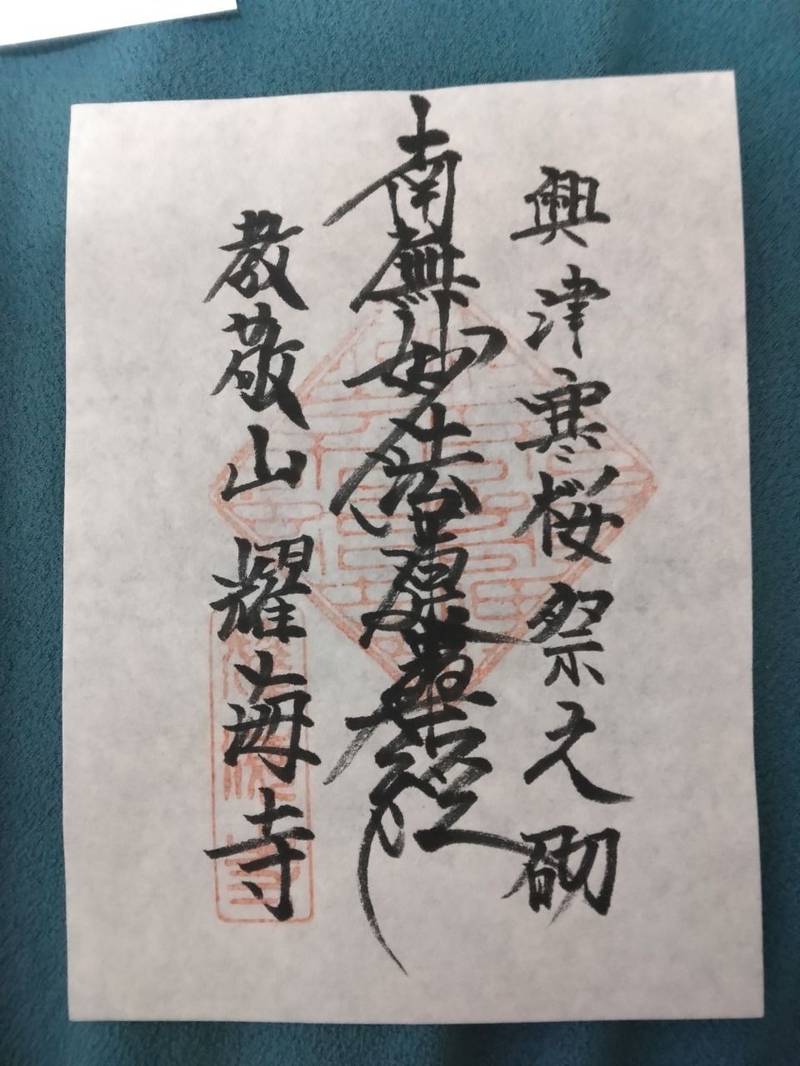 興津寒桜祭之砌
南無妙法蓮華經
教敬山 耀海寺